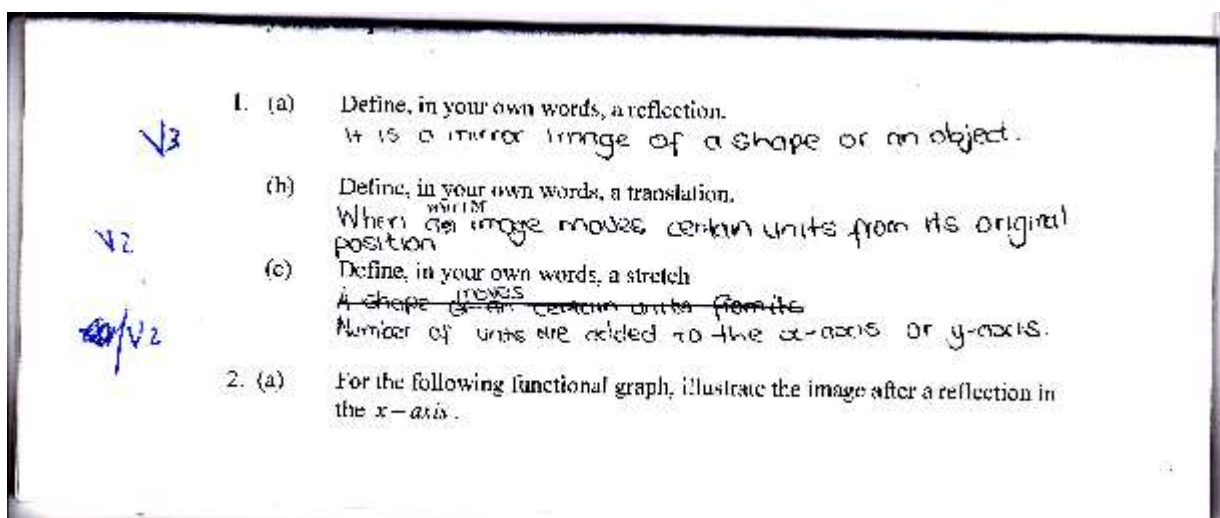 1. (a) Define, in your own words, a reflection.
√3 It is a mirror image of a shape or an object.
(b) Define, in your own words, a translation.
When an image moves certain units from its original
√2 position
(c) Define, in your own words, a stretch
moves
A shape certain units from its
√2 Number of units are added to the x-axis or y-axis.
2. (a) For the following functional graph, illustrate the image after a reflection in
the x – axis.